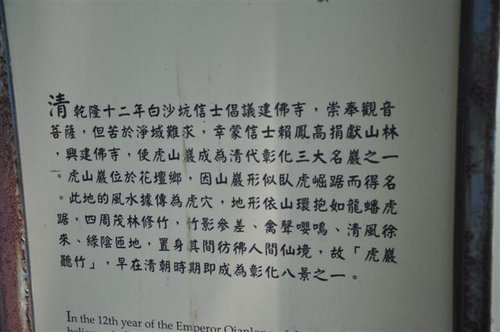 清乾隆十二年白沙坑信士倡議建佛寺，崇奉觀音
菩薩，但苦於淨域難求，幸蒙信士賴鳳高捐獻山林
，興建佛寺，使虎山巖成為清代彰化三大名巖之一
。虎山巖位於花壇鄉，因山巖形似臥虎崛踞而得名
。此地的風水據傳為虎穴，地形依山環抱如龍蟠虎
踞，四周茂林修竹，竹影參差、禽聲嚶鳴、清風徐
來、綠陰匝地，置身其間彷彿人間仙境，故「虎巖
聽竹」，早在清朝時期即成為彰化八景之一。
In the 12th year of the Emperor Qianlong